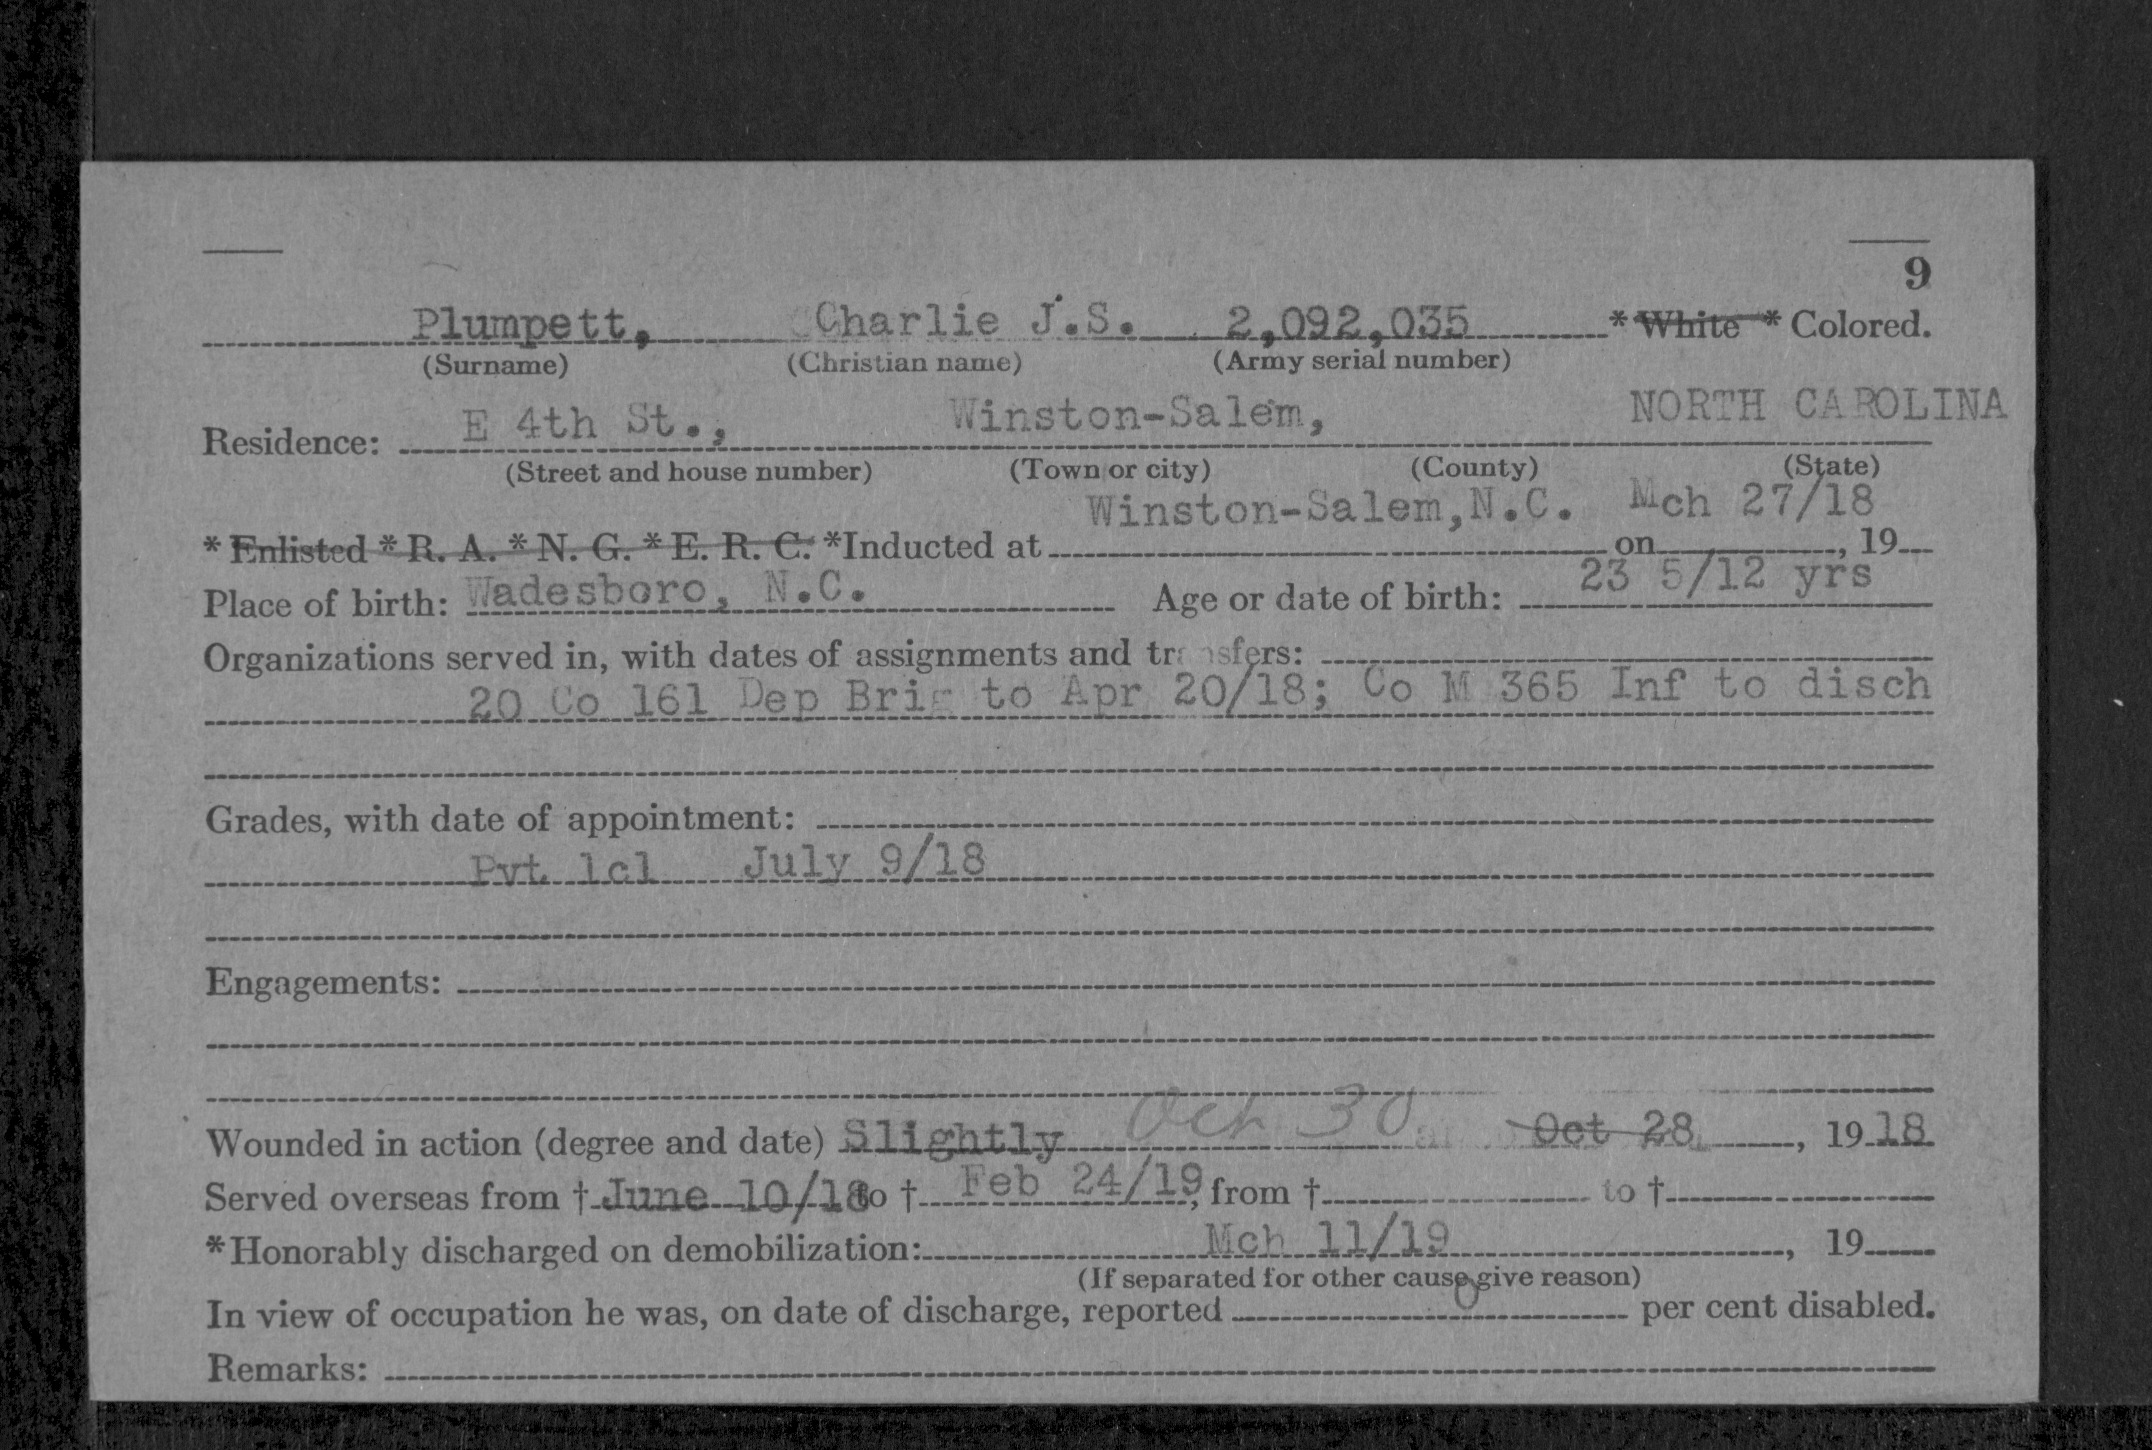 9
Plumpett, Charlie J.S. 2,092,035 * White * Colored.
(Surname) (Christian name) (Army serial number)
Residence: E 4th St., Winston-Salem, NORTH CAROLINA
(Street and house number) (Town or city) (County) (State)
Winston-Salem, N.C. Mch 27/18
* Enlisted * R. A. * N. G. * E. R. C. *Inducted at on , 19
Place of birth: Wadesboro, N.C. Age or date of birth: 23 5/12 yrs
Organizations served in, with dates of assignments and transfers:
20 Co 161 Dep Brig to Apr 20/18; Co M 365 Inf to disch
Grades, with date of appointment:
Pvt 1cl July 9/18
Engagements:
Wounded in action (degree and date) Slightly Oct 30 Oct 28, 1918
Served overseas from † June 10/18 to † Feb 24/19, from † to †
*Honorably discharged on demobilization: Mch 11/19, 19
(If separated for other cause give reason)
In view of occupation he was, on date of discharge, reported 0 per cent disabled.
Remarks: